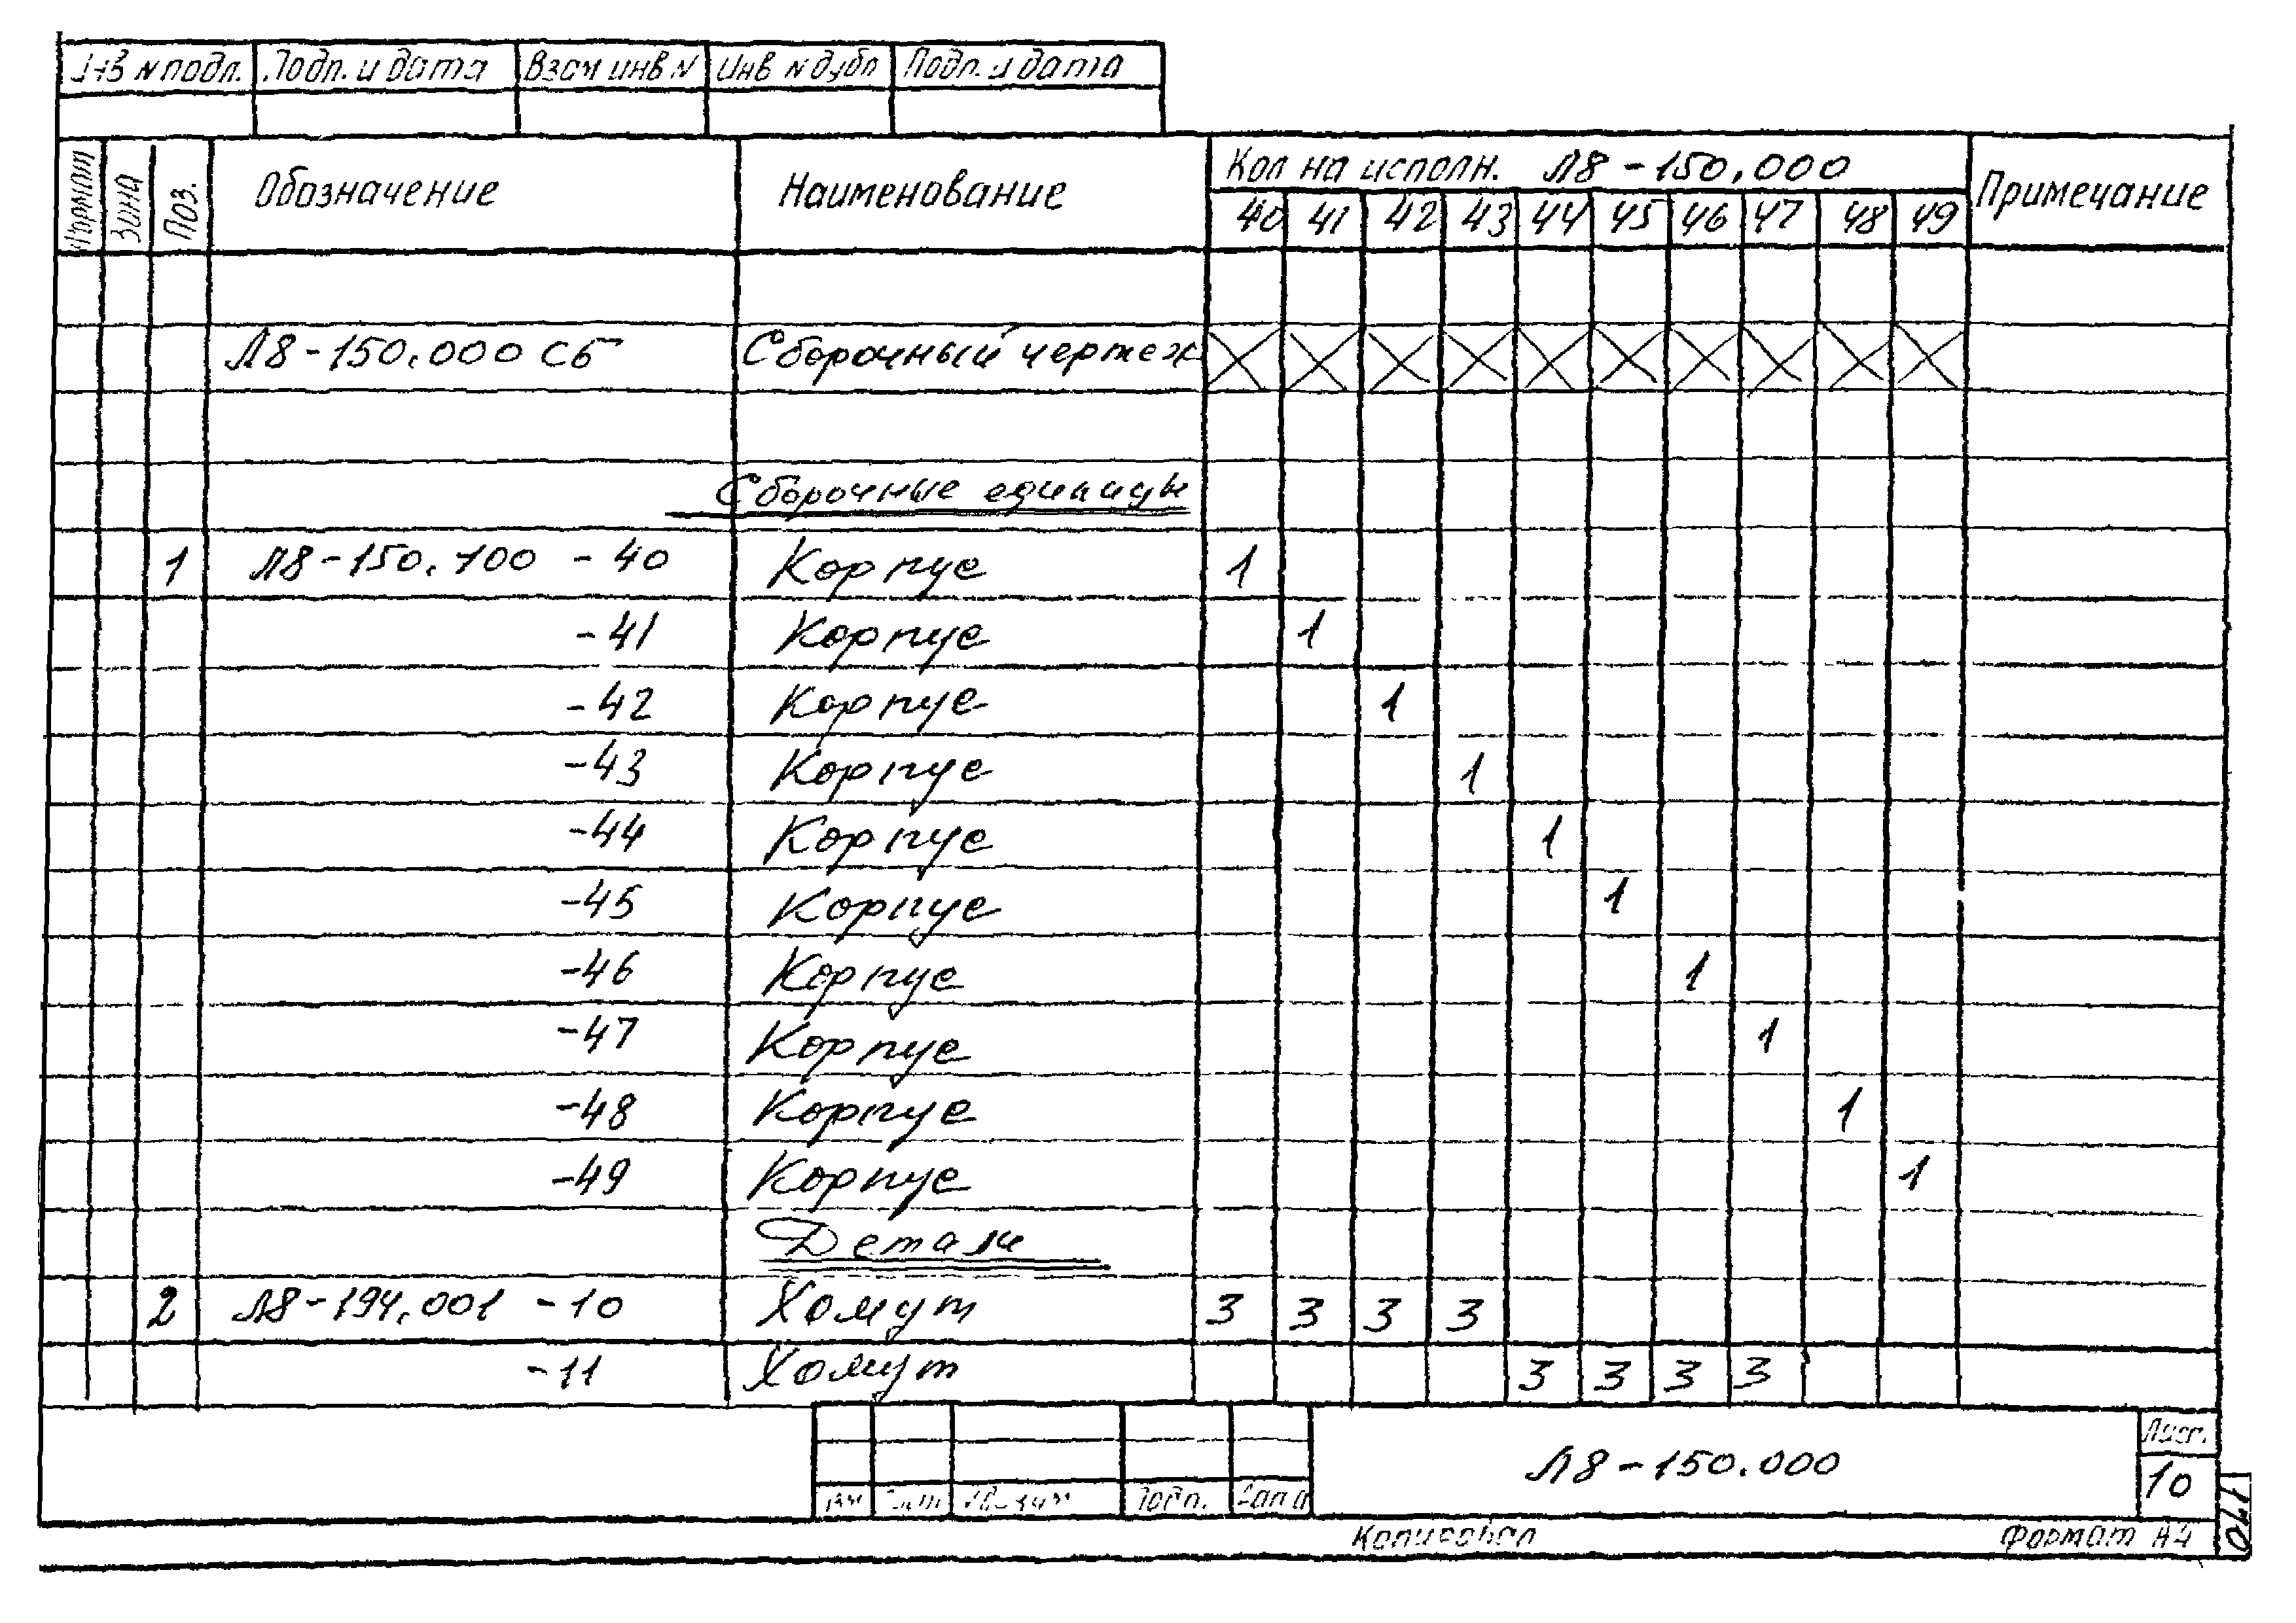 Инв N подл. Подп. и дата Взам инв N Инв N дубл Подп. и дата
Формат Зона Поз. Обозначение Наименование Кол на исполн. Л8-150.000 Примечание
40 41 42 43 44 45 46 47 48 49
Л8-150.000 СБ Сборочный чертеж
Сборочные единицы
1 Л8-150.100 -40 Корпус 1
-41 Корпус 1
-42 Корпус 1
-43 Корпус 1
-44 Корпус 1
-45 Корпус 1
-46 Корпус 1
-47 Корпус 1
-48 Корпус 1
-49 Корпус 1
Детали
2 Л8-194.001 -10 Хомут 3 3 3 3
-11 Хомут 3 3 3 3
Л8-150.000
Лист
10
Подп. Дата
Копировал Формат А4
170